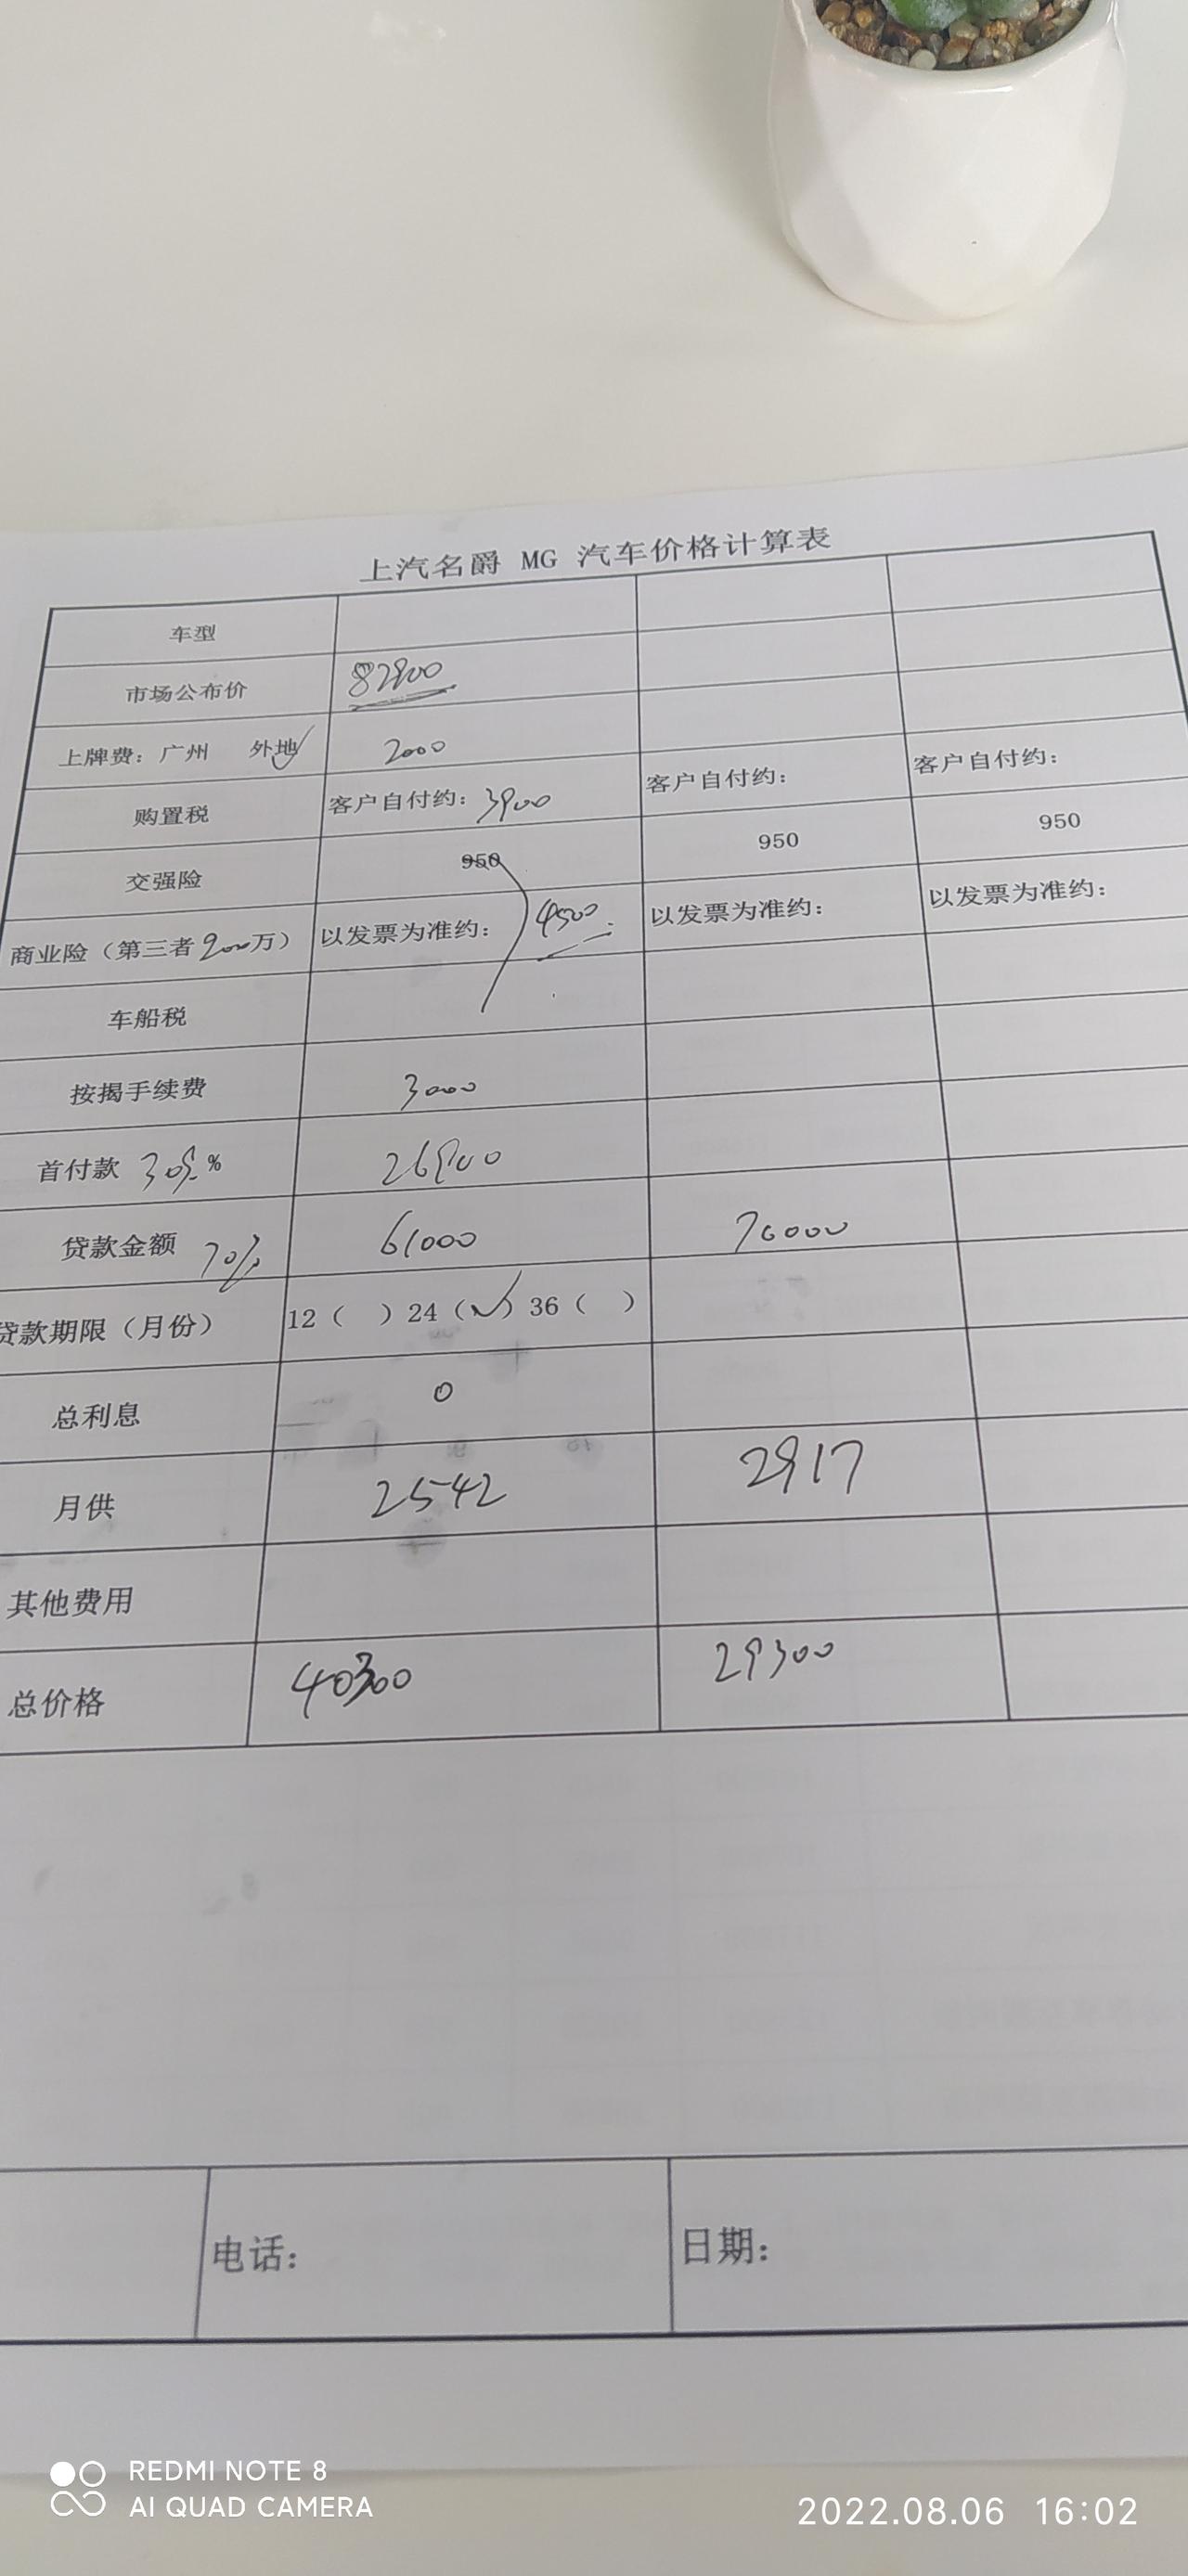 上汽名爵 MG 汽车价格计算表
车型
市场公布价 82800
上牌费：广州 外地 2000
购置税 客户自付约：3900 客户自付约： 客户自付约：
交强险 950 950 950
商业险（第三者200万） 以发票为准约：4500 以发票为准约： 以发票为准约：
车船税
按揭手续费 3000
首付款 30% % 26900
贷款金额 70% 61000 70000
贷款期限（月份） 12（ ）24（✓）36（ ）
总利息 0
月供 2542 2917
其他费用
总价格 40300 29300
电话： 日期：
REDMI NOTE 8
AI QUAD CAMERA
2022.08.06 16:02